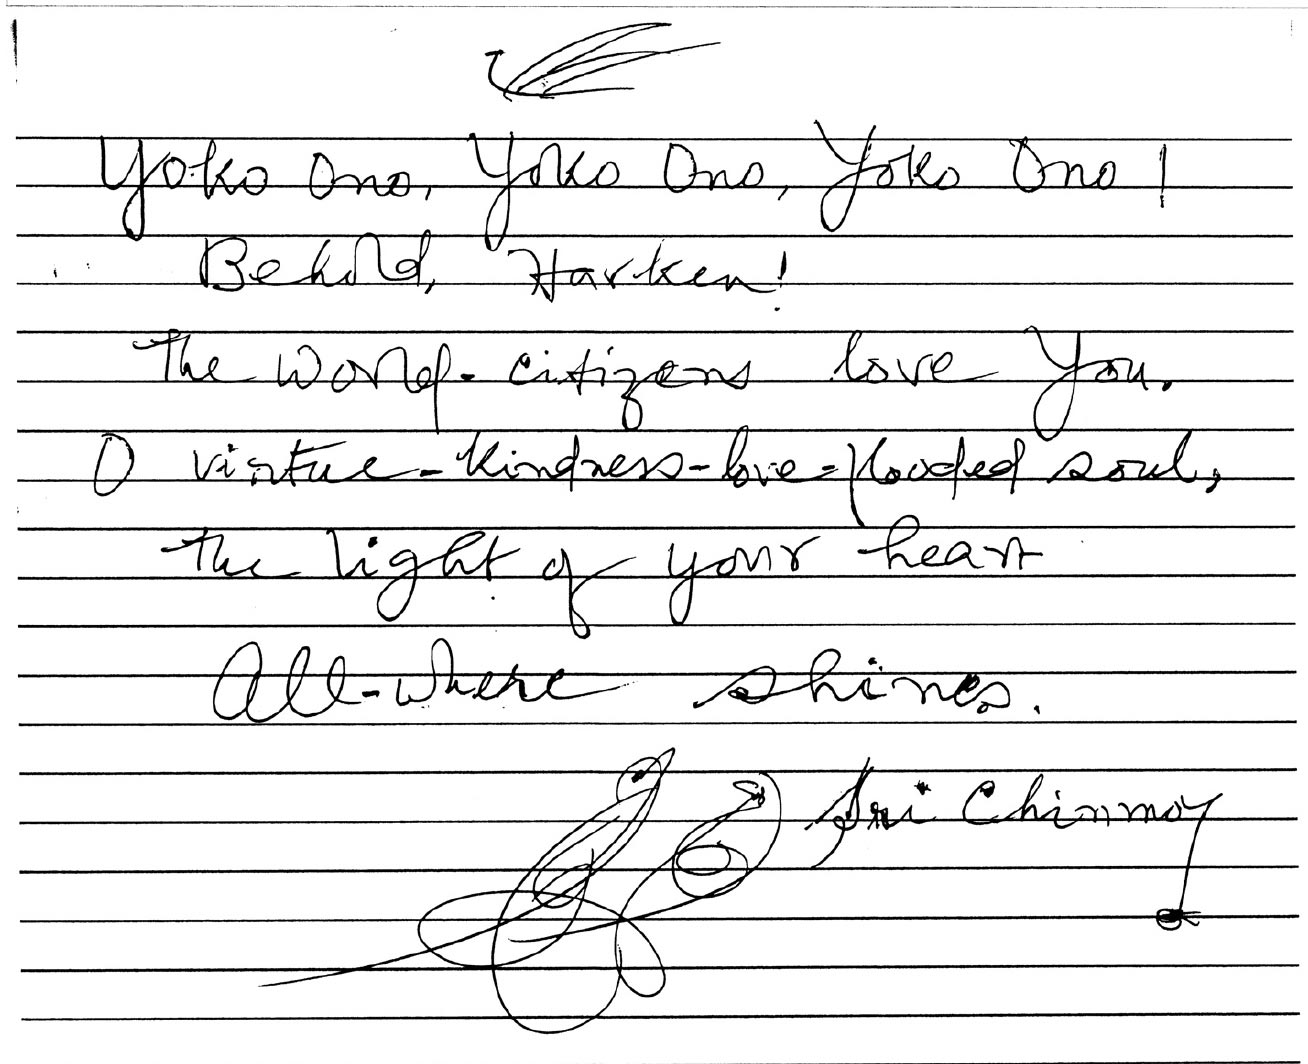 Yoko Ono, Yoko Ono, Yoko Ono!
Behold, Harken!
The world-citizens love you.
O virtue-kindness-love-flooded soul,
The light of your heart
All-where shines.
Sri Chinmoy